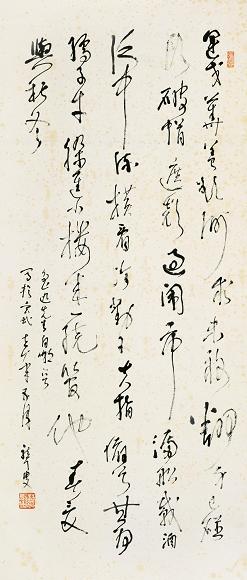 運交華蓋欲何求未敢翻身已碰
頭破帽遮顏過鬧市漏船載酒
泛中流橫眉冷對千夫指俯首甘為
孺子牛躲進小樓成一統管他春夏
與秋冬
魯迅先生自嘲